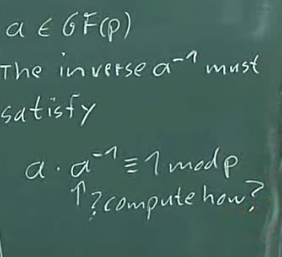 a ∈ GF(p)
The inverse a⁻¹ must
satisfy
a · a⁻¹ ≡ 1 mod p
↑ ? compute how?